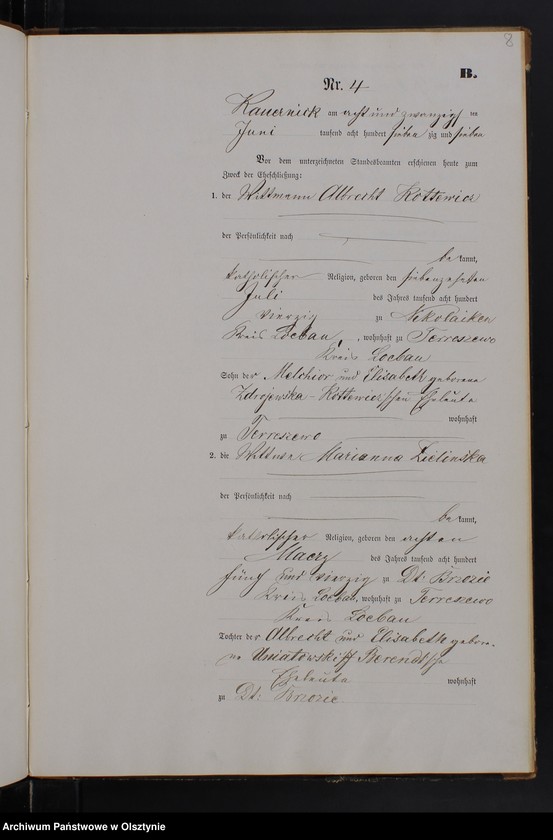 8
B.
Nr. 4
Kauernick am acht und zwanzigsten
Juni tausend acht hundert sieben zig und sieben
Vor dem unterzeichneten Standesbeamten erschienen heute zum
Zweck der Eheschließung:
1. der Wittmann Albrecht Kottewicz
der Persönlichkeit nach
be kannt,
katholischer Religion, geboren den siebenzehnten
Juli des Jahres tausend acht hundert
vierzig zu Nikolaiken
Kreis Loebau, wohnhaft zu Terreszewo
Kreis Loebau
Sohn der Melchior und Elisabeth geborene
Zdrojewska - Kottewicz'schen Eheleute
wohnhaft
zu Terreszewo
2. die Wittwe Marianna Zielinska
der Persönlichkeit nach
be kannt,
katholischer Religion, geboren den achten
Maerz des Jahres tausend acht hundert
fünf und vierzig zu Dt: Brzozie
Kreis Loebau, wohnhaft zu Terreszewo
Kreis Loebau
Tochter der Albrecht und Elisabeth gebore-
ne Uniatowski Berendt'sche
Eheleute wohnhaft
zu Dt: Brzozie
Archiwum Państwowe w Olsztynie